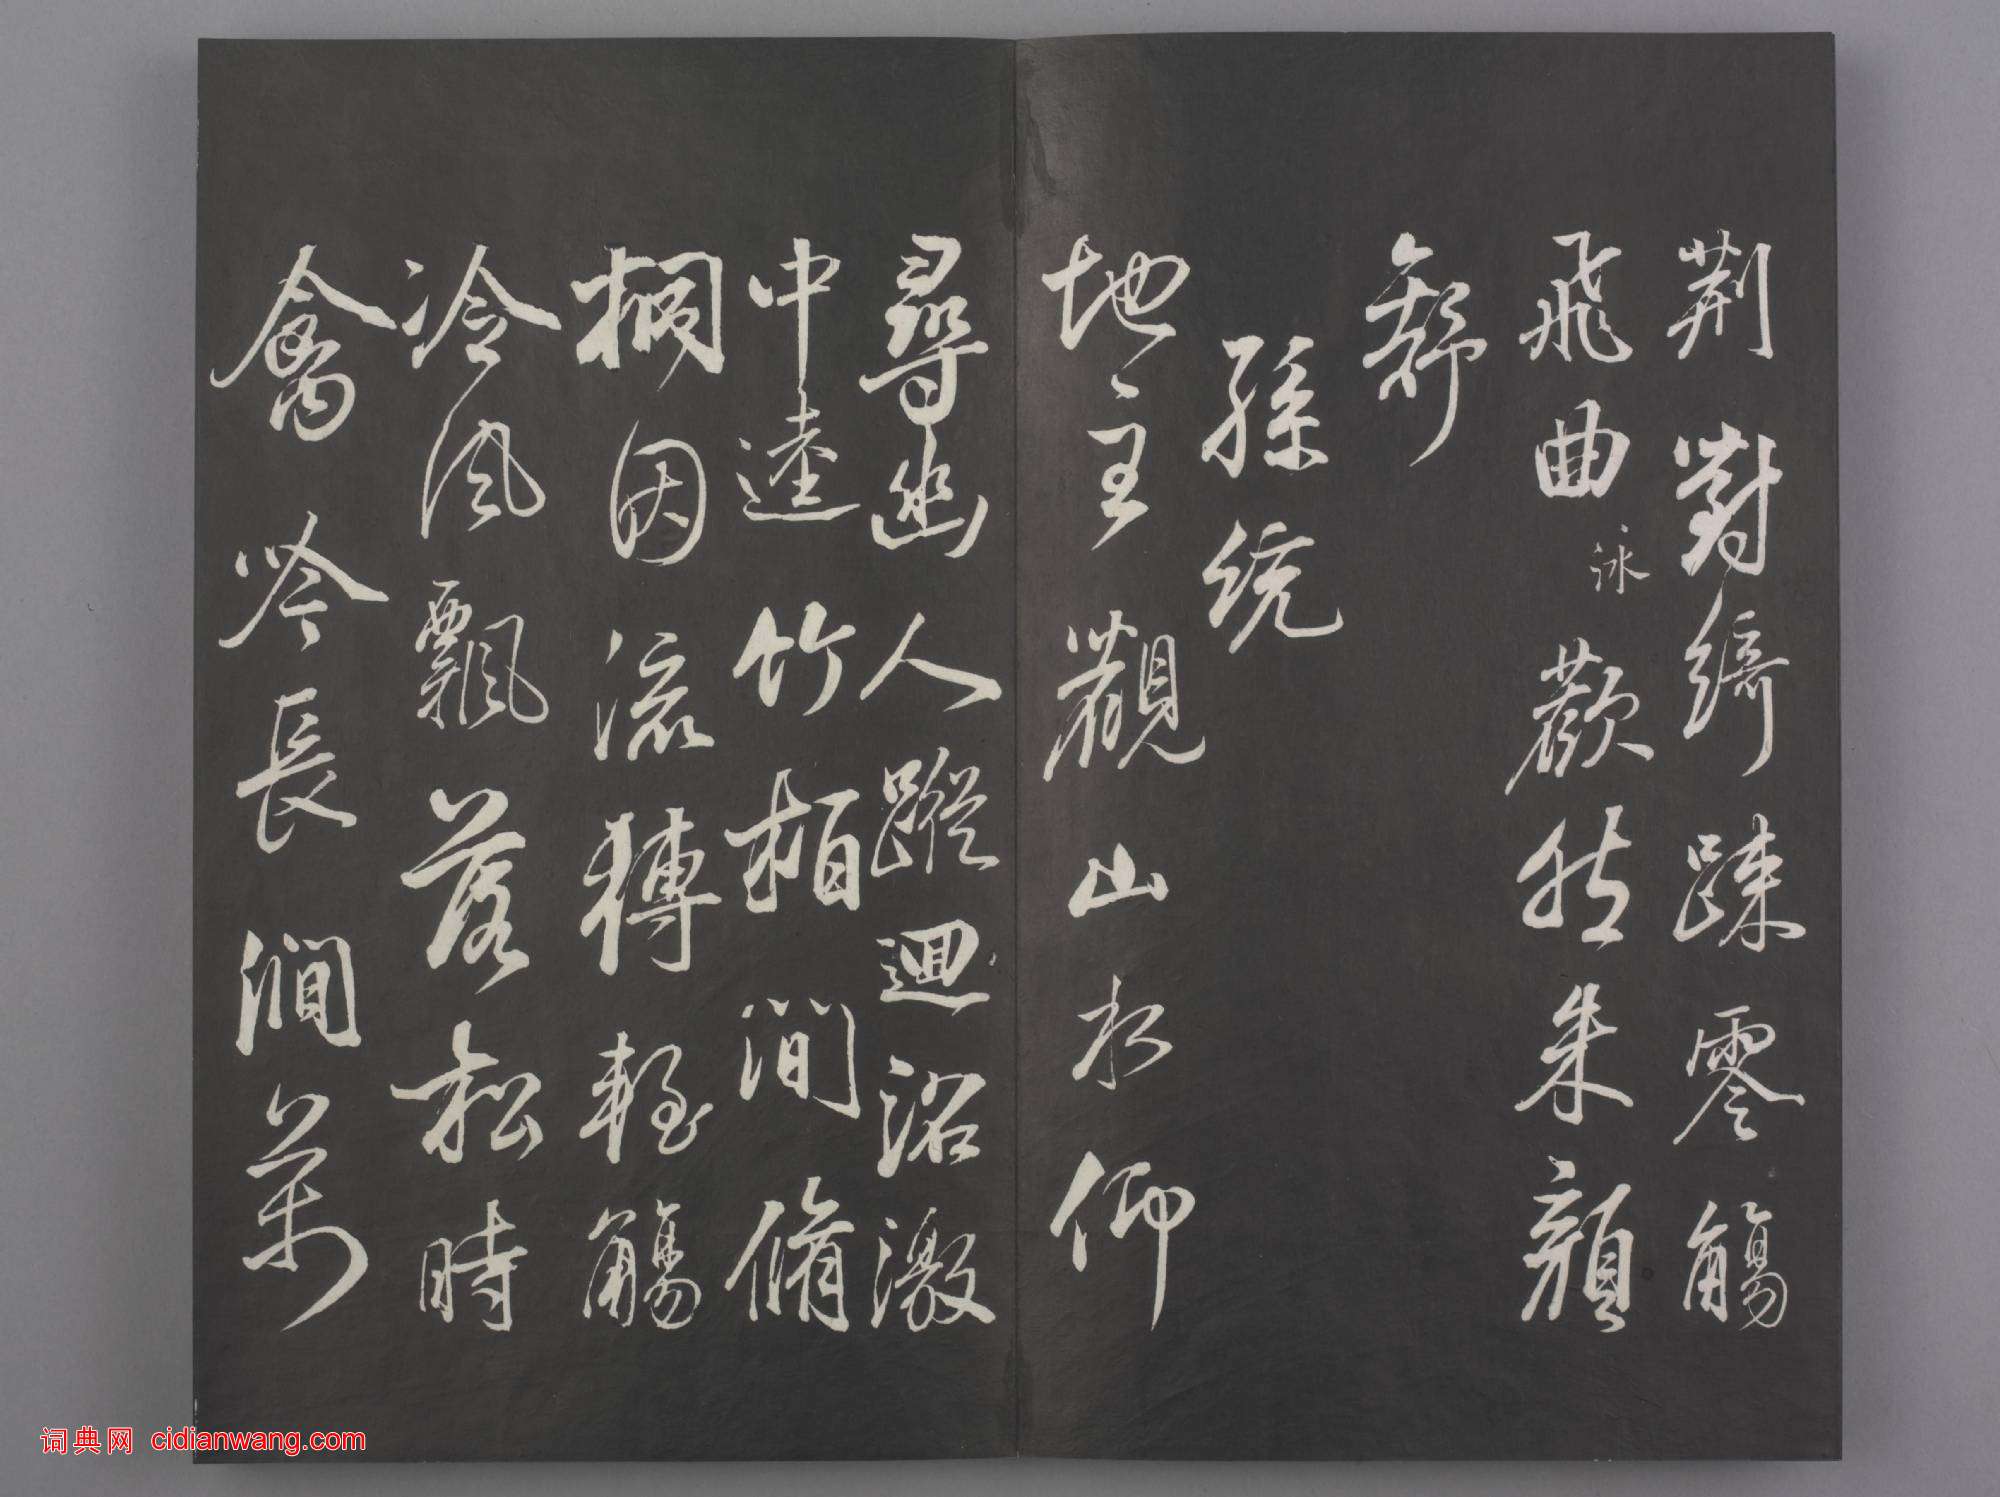 荊對綺疎零觴
飛曲泳歡然朱顔
舒
孫統
地主觀山水仰
尋幽人蹤迴沼激
中逵竹栢間脩
桐因流轉輕觴
冷風飄落松時
禽吟長澗萬
词典网 cidianwang.com